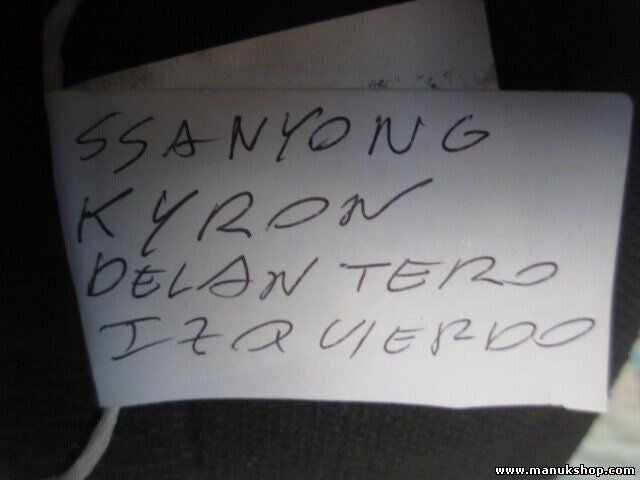 SSANYONG
KYRON
DELANTERO
IZQUIERDO
www.manukshop.com